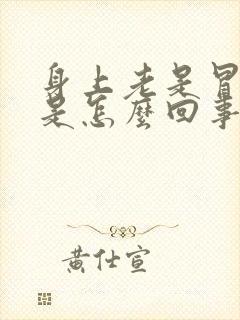 身上老是冒
是怎麼回事
黄仕宣